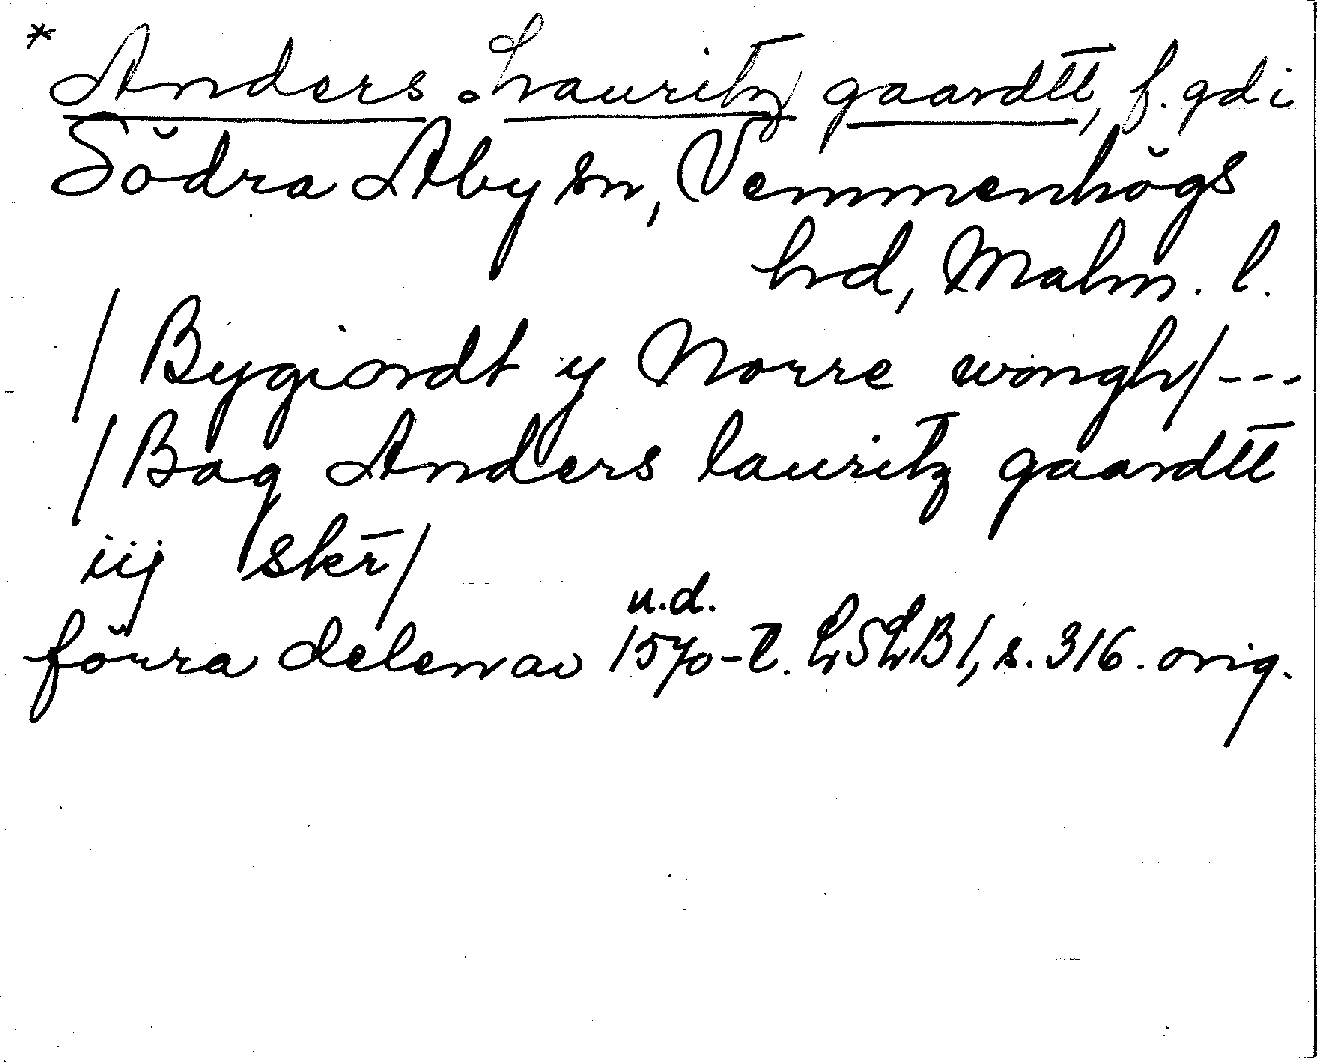 * Anders Lauritz gaardtt, f. gd i
Södra Åby sn, Vemmenhögs
hrd, Malm. l.
/ Bygiordt y Norre wongh/ ---
/ Bag Anders lauritz gaardtt
iij skr̄ /
u.d.
förra delen av 1570-t. LSLB 1, s. 316. orig.